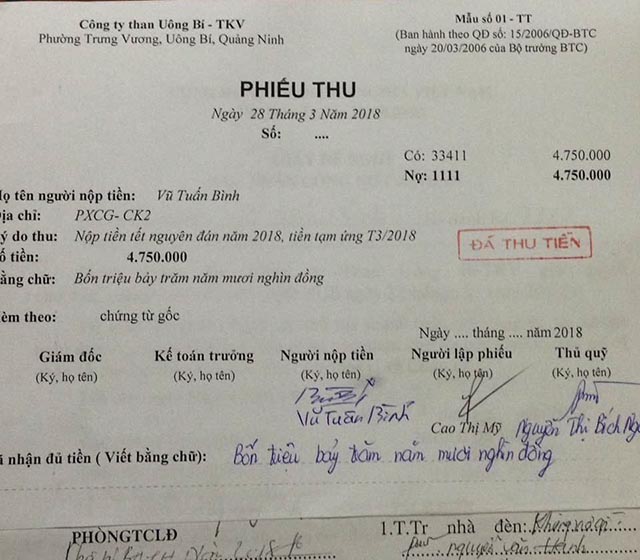 Công ty than Uông Bí - TKV
Phường Trưng Vương, Uông Bí, Quảng Ninh
Mẫu số 01 - TT
(Ban hành theo QĐ số: 15/2006/QĐ-BTC
ngày 20/03/2006 của Bộ trưởng BTC)
PHIẾU THU
Ngày 28 Tháng 3 Năm 2018
Số: ....
Có: 33411 4.750.000
Nợ: 1111 4.750.000
ọ tên người nộp tiền: Vũ Tuấn Bình
ịa chỉ: PXCG- CK2
ý do thu: Nộp tiền tết nguyên đán năm 2018, tiền tạm ứng T3/2018
ĐÃ THU TIỀN
ố tiền: 4.750.000
ằng chữ: Bốn triệu bảy trăm năm mươi nghìn đồng
èm theo: chứng từ gốc
Ngày .... tháng .... năm 2018
Giám đốc Kế toán trưởng Người nộp tiền Người lập phiếu Thủ quỹ
(Ký, họ tên) (Ký, họ tên) (Ký, họ tên) (Ký, họ tên) (Ký, họ tên)
Vũ Tuấn Bình Cao Thị Mỹ Nguyễn Thị Bích Ng
ã nhận đủ tiền ( Viết bằng chữ): Bốn triệu bảy trăm năm mươi nghìn đồng
PHÒNGTCLĐ 1.T.Tr nhà đèn: